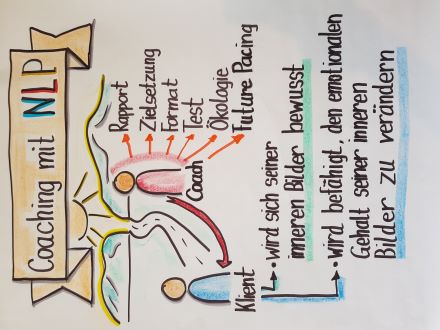 Coaching mit NLP
Rapport
Zielsetzung
Format
Test
Ökologie
Future Pacing
Coach
Klient
• wird sich seiner
inneren Bilder bewusst
• wird befähigt, den emotionalen
Gehalt seiner inneren
Bilder zu verändern